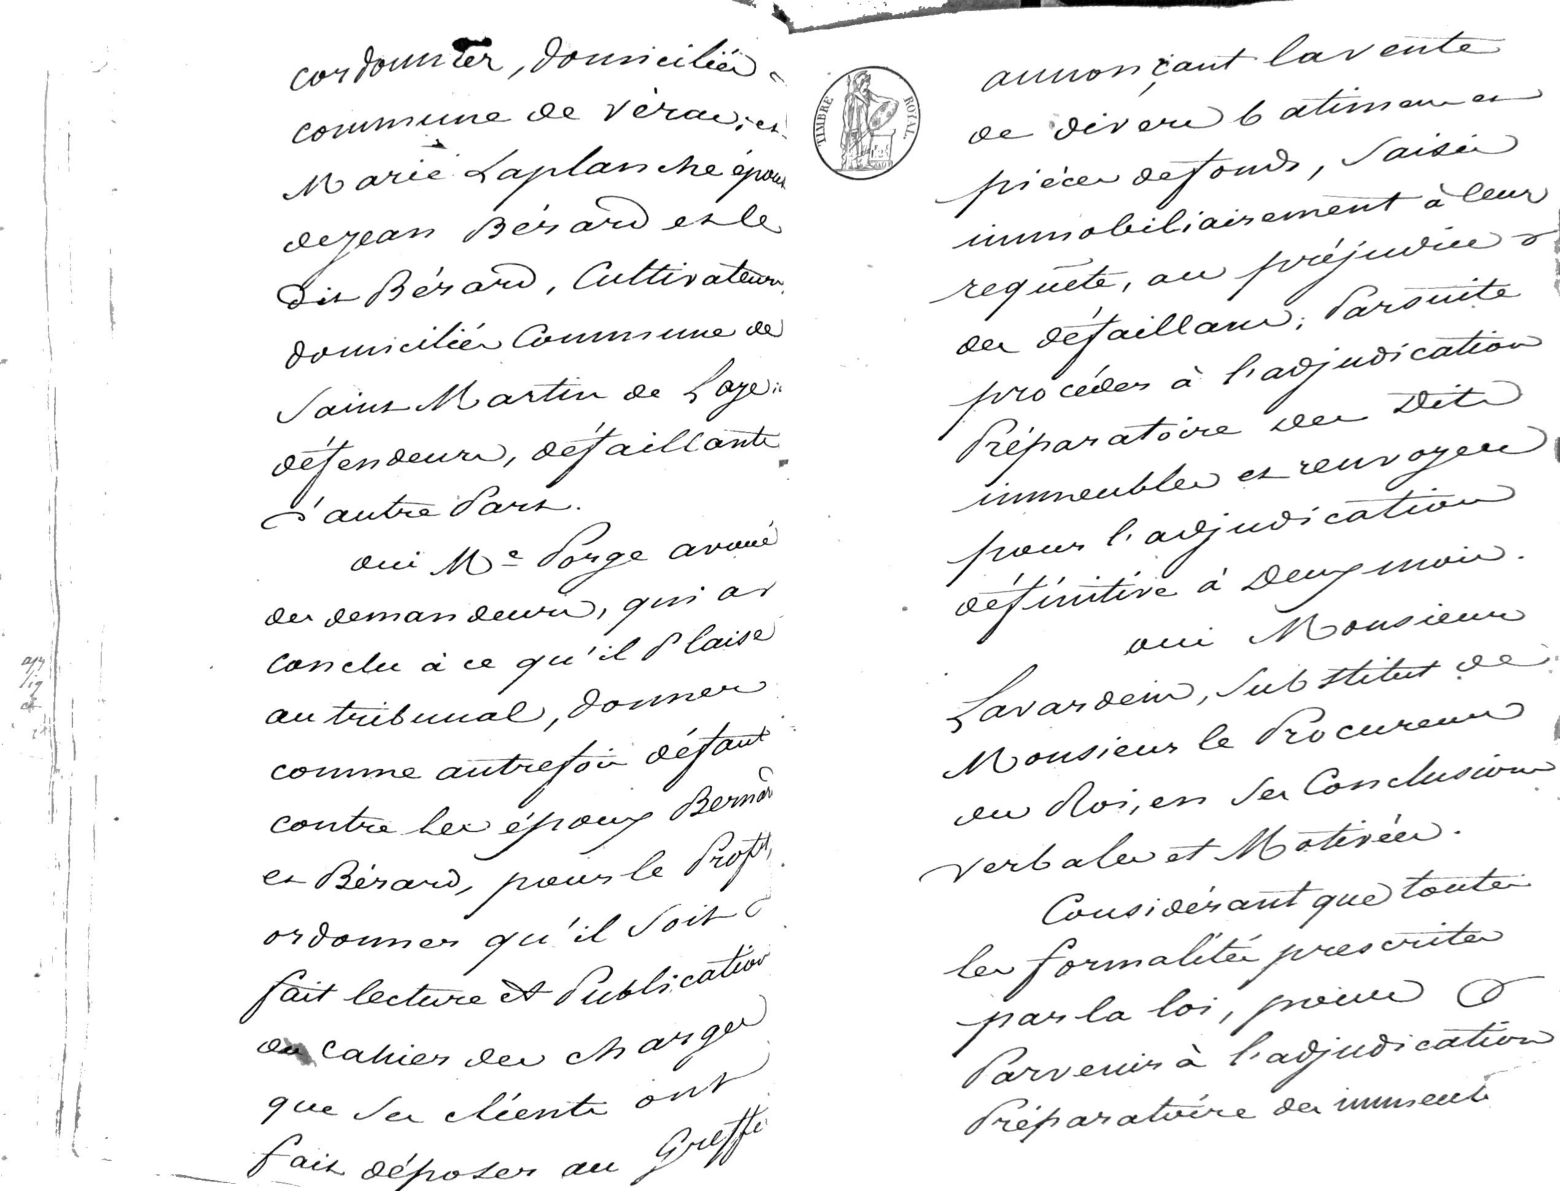 cordonnier, domiciliés
commune de Vérac; et
Marie Laplanche épouse
de jean Bérard et le
dit Bérard, Cultivateurs,
domiciliés Commune de
Saint Martin de Laye;
défendeurs, défaillants
d'autre Part.
oui Me Porge avoué
des demandeurs, qui a
conclu à ce qu'il Plaise
au tribunal, donner
comme autrefois défaut
contre les époux Bernard
et Bérard, pour le Profit,
ordonner qu'il Soit
fait lecture et Publication
du cahier des charges
que Ses clients ont
fait déposer au Greffe
TIMBRE ROYAL
annonçant la vente
de divers batimens et
pièces de fonds, Saisis
immobiliairement à leur
requête, au préjudice
des défaillans; Parsuite
procéder à l'adjudication
Préparatoire des Dits
immeubles et renvoyer
pour l'adjudication
définitive à Deux mois.
oui Monsieur
Lavardein, Substitut de
Monsieur le Procureur
du Roi, en Ses Conclusions
verbales et Motivées.
Considérant que toutes
les formalités prescrites
par la loi, pour
Parvenir à l'adjudication
Préparatoire des immeubles